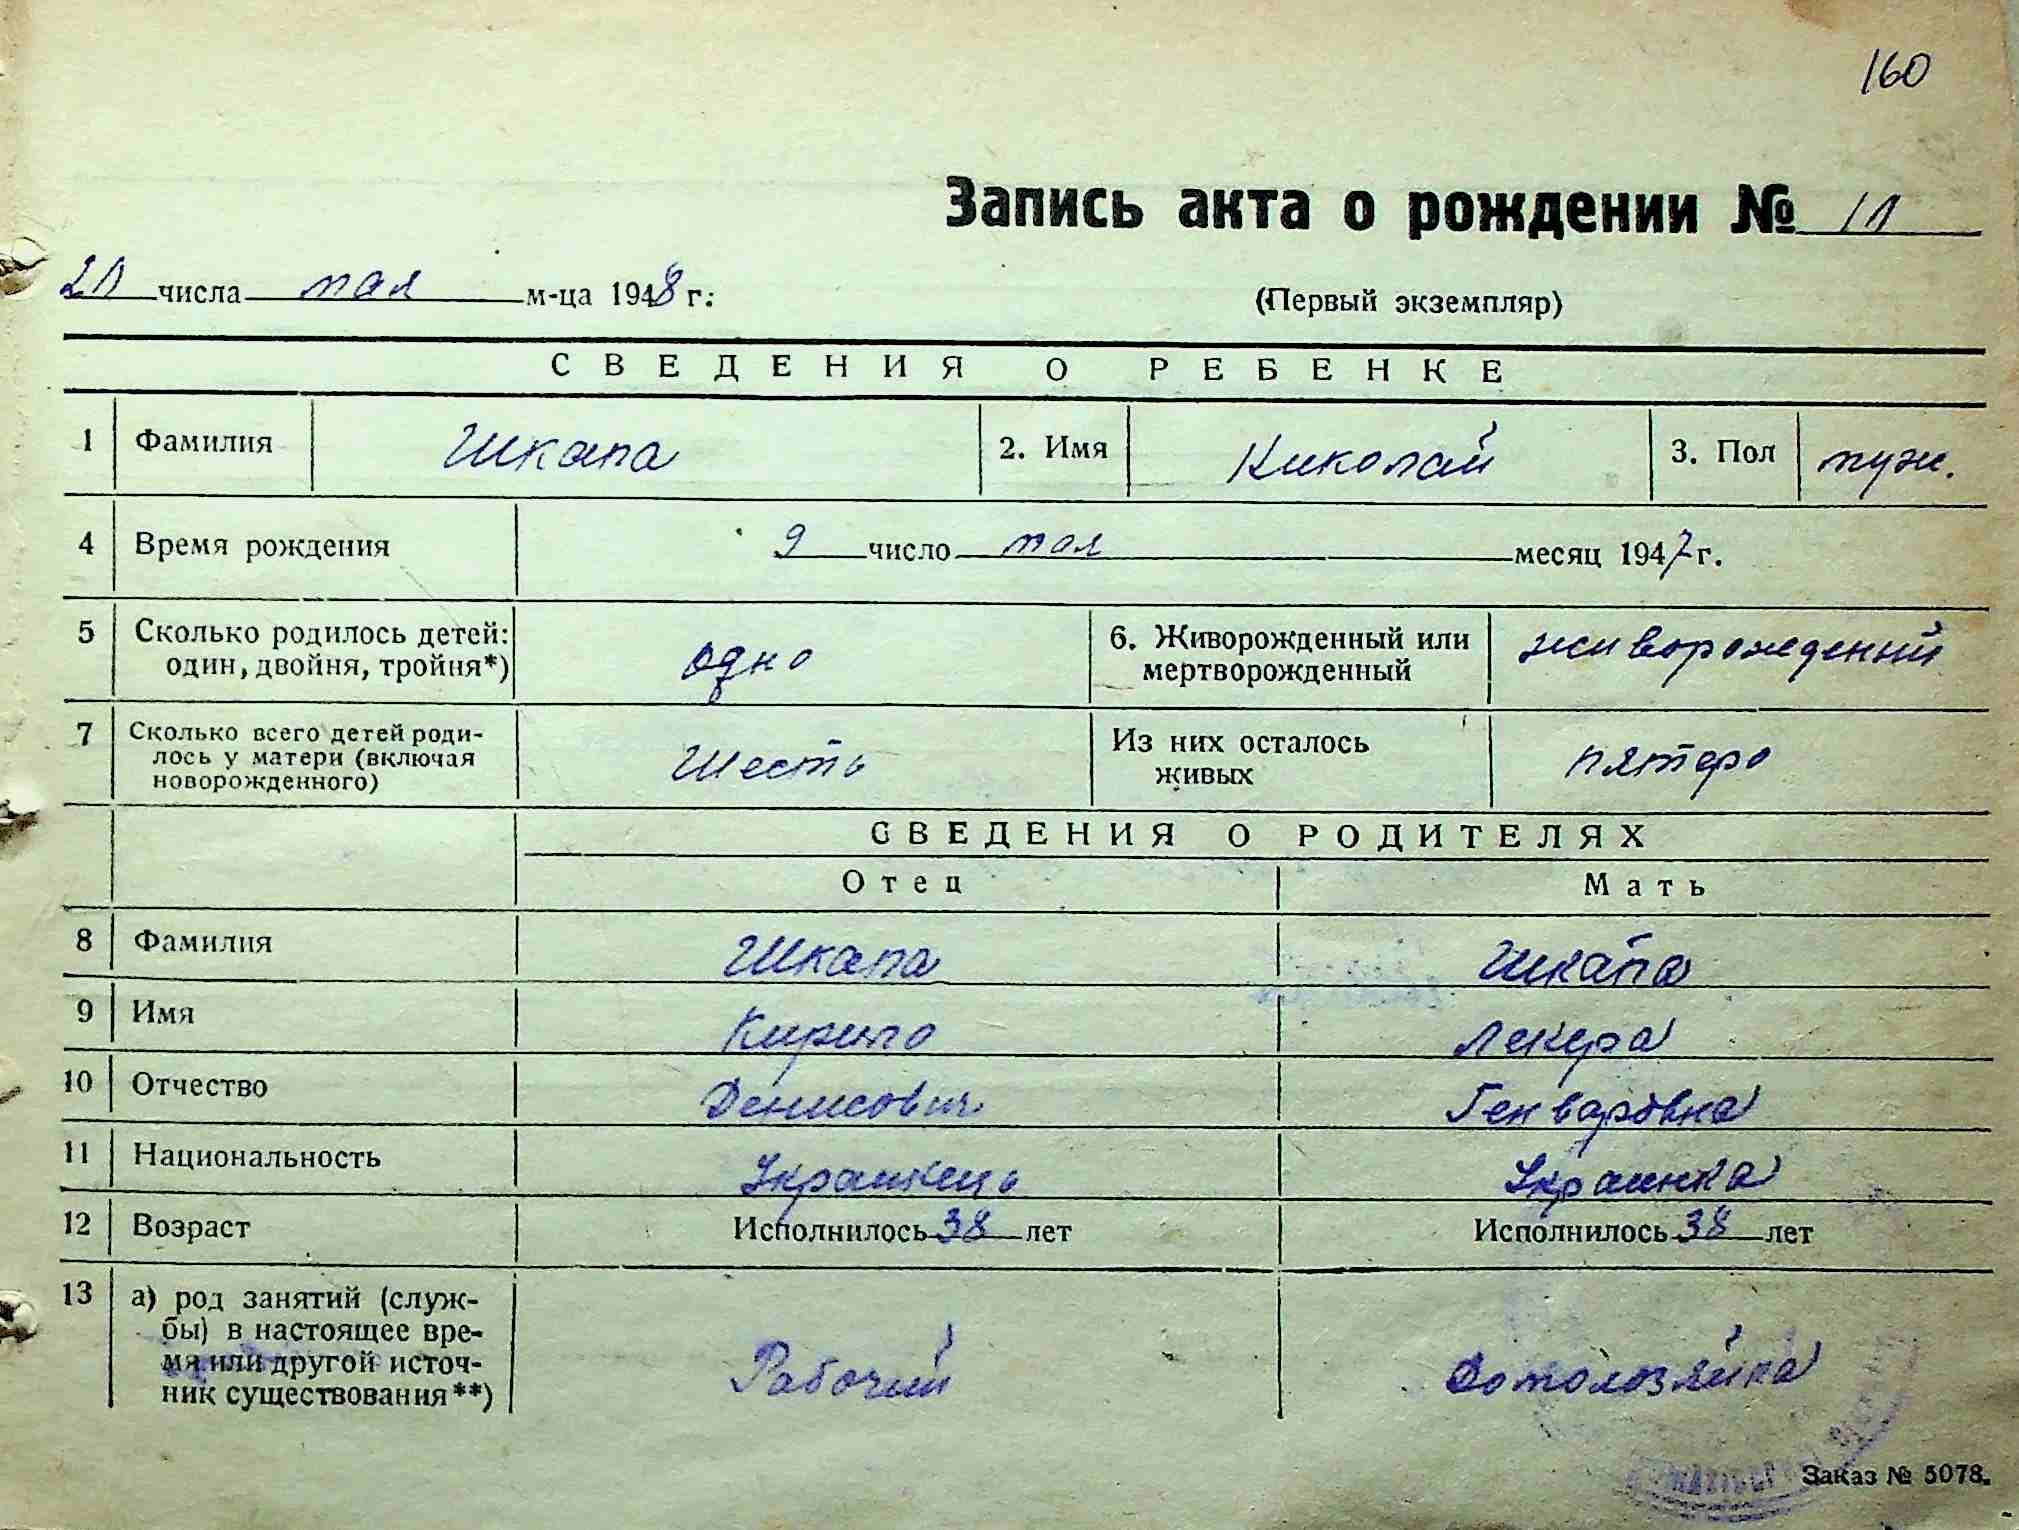 160
Запись акта о рождении № 11
21 числа мая м-ца 1948 г.
(Первый экземпляр)
СВЕДЕНИЯ О РЕБЕНКЕ
1 Фамилия Шкапа 2. Имя Николай 3. Пол муж.
4 Время рождения 9 число мая месяц 1947 г.
5 Сколько родилось детей: один, двойня, тройня*) одно 6. Живорожденный или мертворожденный живорожденный
7 Сколько всего детей родилось у матери (включая новорожденного) Шесть Из них осталось живых пятеро
СВЕДЕНИЯ О РОДИТЕЛЯХ
Отец Мать
8 Фамилия Шкапа Шкапа
9 Имя Кирило
10 Отчество Денисович Генваровна
11 Национальность Украинець Украинка
12 Возраст Исполнилось 38 лет Исполнилось 38 лет
13 а) род занятий (служ-
бы) в настоящее вре-
мя или другой источ-
ник существования**) Рабочий Домохозяйка
Заказ № 5078.